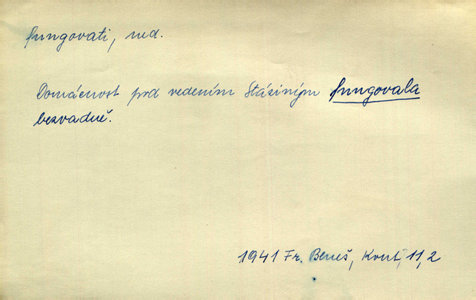 fungovati, ned.
Domácnost pod vedením Stáziným fungovala
bezvadně.
1941 Fr. Beneš, Kont, 11,2